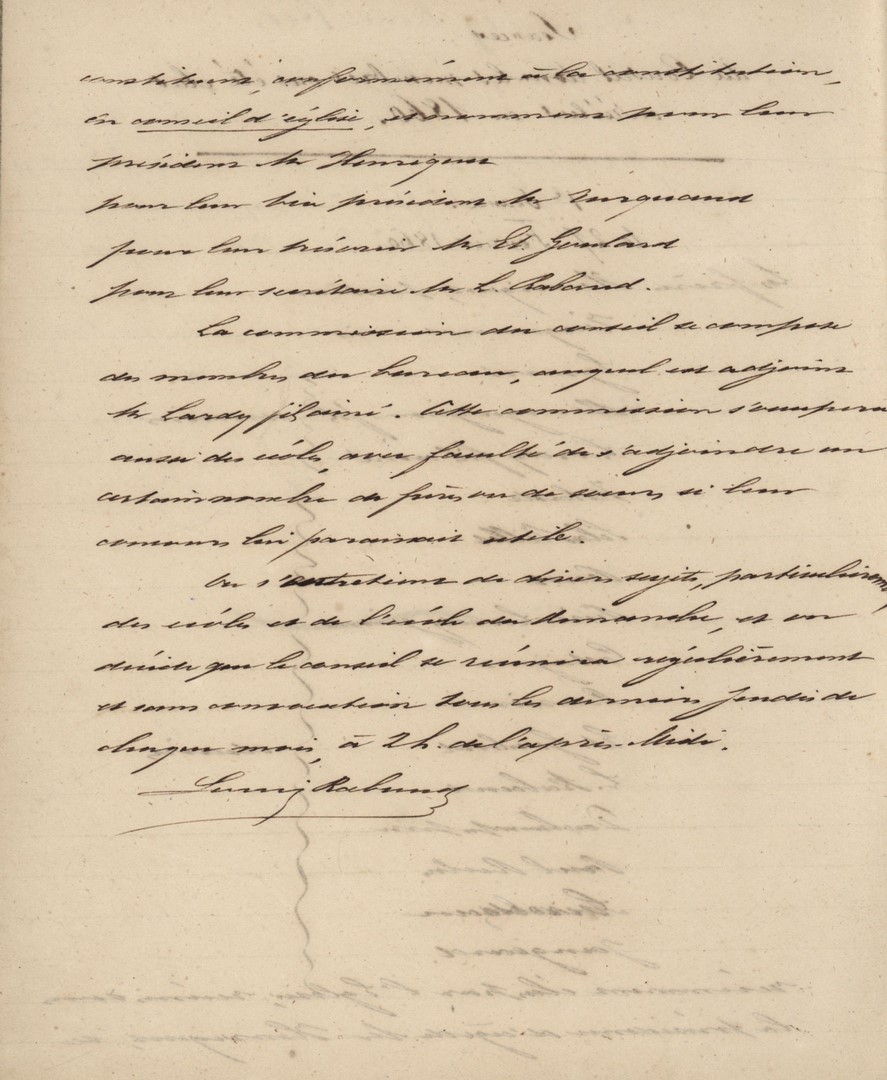 constituent, conformément à la constitution,
en conseil d'église, et nomment pour leur
président Mr Henriquez
pour leur vice président Mr Turquand
pour leur trésorier Mr Et. Goulard
pour leur secrétaire Mr L. Rabaud.
La commission du conseil se compose
des membres du bureau, auquel est adjoint
Mr Lardy fils ainé. Cette commission s'occupera
aussi des écoles, avec faculté de s'adjoindre un
certain nombre de frères ou de soeurs si leur
concours lui paraissait utile.
On s'entretient de divers sujets, particulièremt
des écoles et de l'école du Dimanche, et on
décide que le conseil se réunira régulièrement
et sans convocation tous les derniers jeudis de
chaque mois, à 2 h. de l'après-Midi.
Louis Rabaud